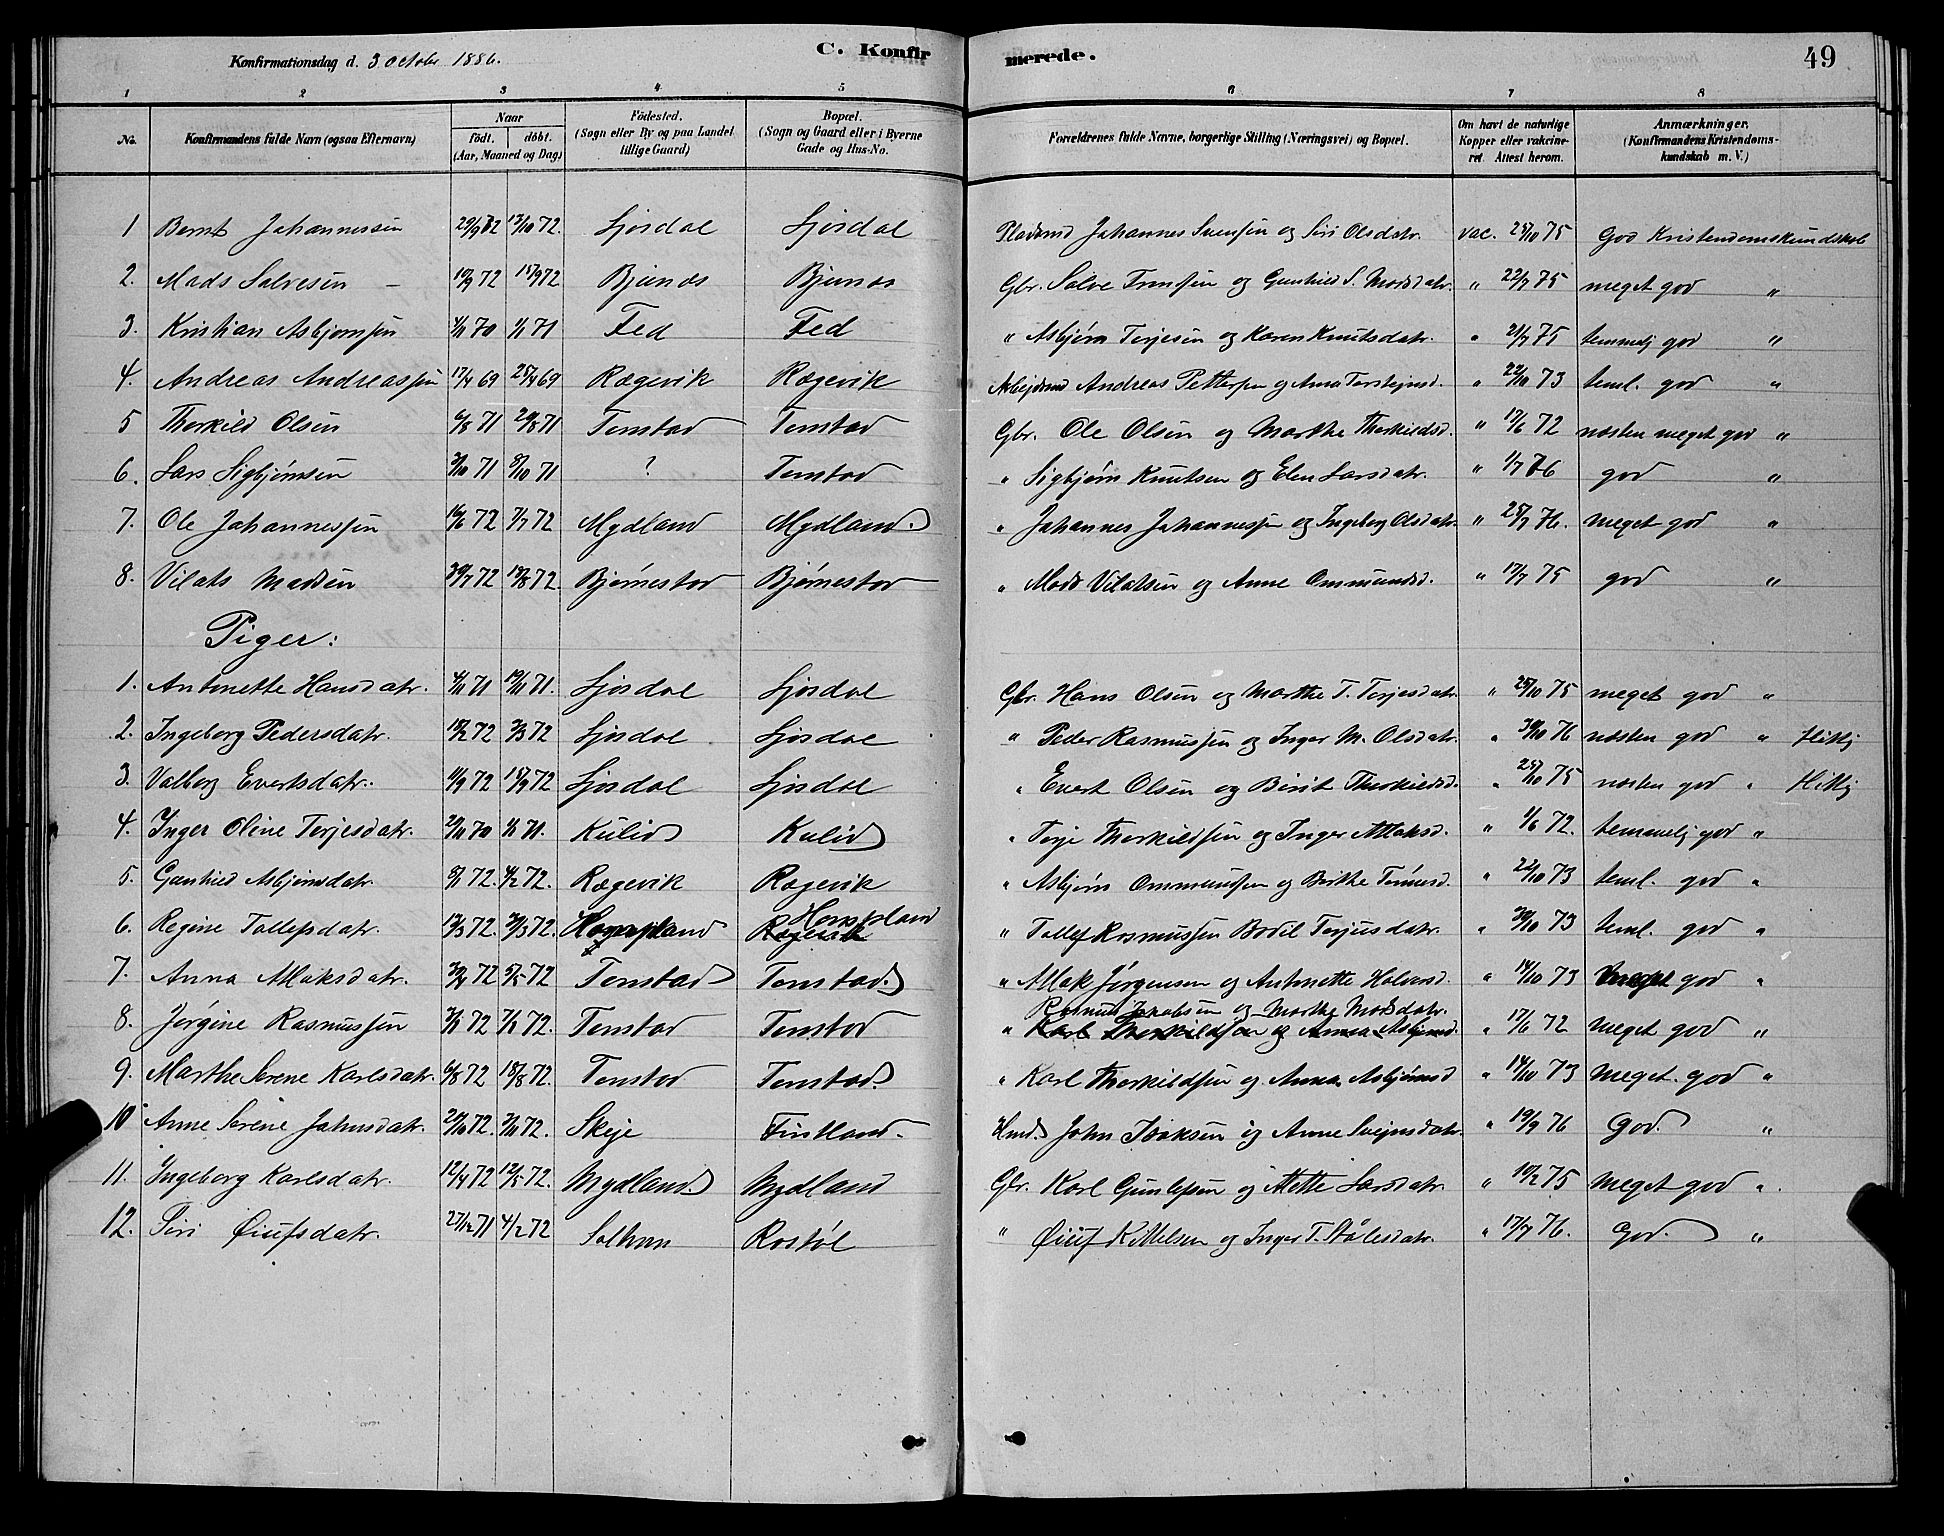 Konfirmationsdag d. 3 October 1886. C. Konfirmerede. 49
1 2 3 4 5 6 7 8
No. Konfirmandens fulde Navn (ogsaa Efternavn) Naar født. døbt. (Aar, Maaned og Dag) Fødested. (Sogn eller By og paa Landet tillige Gaard) Bopæl. (Sogn og Gaard eller i Byerne Gade og Hus-No. Forældrenes fulde Navne, borgerlige Stilling (Næringsvei) og Bopæl. Om havt de naturlige Kopper eller vakcineret. Attest herom. Anmærkninger. (Konfirmandens Kristendomskundskab m. V.)
1 Bernt Johannessen 29/9 72 13/10 72. Sjosdal Sjosdal Pladsmd Johannes Svensen og Siri Olsdatr. vac. 25/10 75 God Kristendomskundskab
2. Mads Salvesen 10/9 72 15/9 72 Bjunes Bjunes Gbr. Salve Tronsen og Gunhild S. Madsdatr. " 22/7 75 meget god "
3. Kristian Asbjørnsen 4/11 70 1/1 71 Fed Fed " Asbjørn Terjesen og Karen Knutsdatr. " 21/7 75 temmelig god "
4. Andreas Andreassen 17/4 69 25/4 69 Rægevik Rægevik Arbeidsmd Andreas Pettersen og Anna Torsteinsd. " 22/10 73 teml. god "
5 Thorkild Olsen 6/8 71 20/8 71 Tonstad Tonstad Gbr. Ole Olsen og Marthe Thorkildsd. " 17/6 72 næsten meget god "
6. Lars Sigbjørnsen 3/10 71 8/10 71 ? Tonstad " Sigbjørn Knutsen og Elen Larsdatr. " 1/7 76 god "
7. Ole Johannessen 16/6 72 7/7 72 Mydland Mydland. " Johannes Johannessen og Ingeborg Olsdatr. " 25/7 76. meget god "
8. Vilats Madsen 30/7 72 18/8 72 Bjørnestad Bjørnestad " Mads Vilatsen og Anne Ommundsd. " 17/7 75 god "
Piger:
1. Antonette Hansdatr. 4/11 71 19/11 71. Sjosdal Sjosdal Gbr. Hans Olsen og Marthe T. Terjesdatr. " 25/10 75 meget god "
2. Ingeborg Pedersdatr. 18/2 72 3/3 72 Sjosdal Sjosdal " Peder Rasmussen og Inger M. Olsdatr. " 30/10 76 næsten god " flittig
3. Valborg Evertsdatr. 11/9 72 15/9 72 Sjosdal Sjosdal " Evert Olsen og Berit Thorkildsd. " 25/10 75 næsten god " flittig
4. Inger Oline Terjesdatr. 20/11 70 1/1 71. Kulid Kulid " Terje Thorkildsen og Inger Atlaksd. " 1/6 72. temmelig god "
5. Gunhild Asbjørnsdatr. 5/1 72. 4/2 72. Rægevik Rægevik " Asbjørn Ommundsen og Berthe Tønnesd. " 22/10 73 teml. god "
6. Regine Tollefsdatr. 13/3 72. 31/3 72. Homspland Rægevik Homspland " Tollef Rasmussen Bodil Terjusdatr. " 30/10 73 teml. god "
7. Anna Atlaksdatr. 30/4 72 5/5 72 Tonstad Tonstad. " Atlak Jørgensen og Antonette Halvorsd. " 14/10 73 meget god "
8. Jørgine Rasmussen 3/12 72 7/2 72. Tonstad Tonstad " Rasmus Jacobsen og Marthe Madsdatr. Karl Thorkildsen og Anna Asbjørnsd. " 17/6 72 meget god "
9. Marthe Serene Karlsdatr. 6/8 72 18/8 72. Tonstad Tonstad " Karl Thorkildsen og Anna Asbjørnsd " 14/10 73 meget god "
10 Anne Serene Johnsdatr. 20/10 72. 3/11 72. Skeje Fintland. Hmd. John Isaksen og Anne Sveinsdatr. " 19/9 76 God. "
11. Ingeborg Karlsdatr. 12/4 72 12/5 72. Mydland. Mydland Gbr. Karl Gunlefsen og Mette Larsdatr. " 10/2 75 meget god "
12. Siri Øiufsdatr. 27/12 71 4/2 72 Solhom Rostøl " Øiuf Kittelsen og Inger T. Stålesdatr. " 17/7 76. God. "